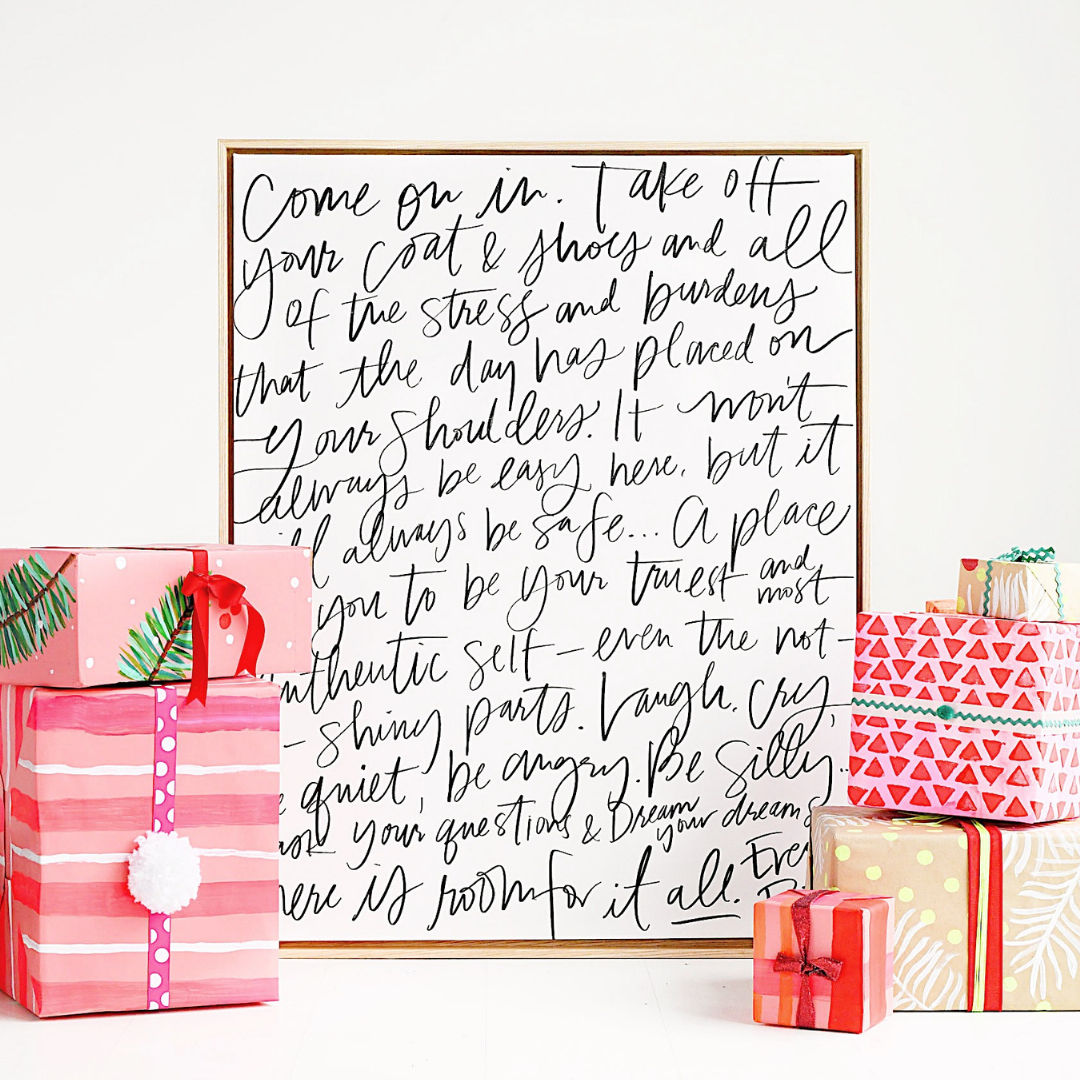 Come on in. Take off
your coat & shoes and all
of the stress and burdens
that the day has placed on
your shoulders. It won't
always be easy here, but it
always be safe... A place
you to be your truest and most
authentic self - even the not-
- shiny parts. Laugh, cry,
quiet, be angry. Be silly..
your questions & Dream your dreams
here is room for it all.